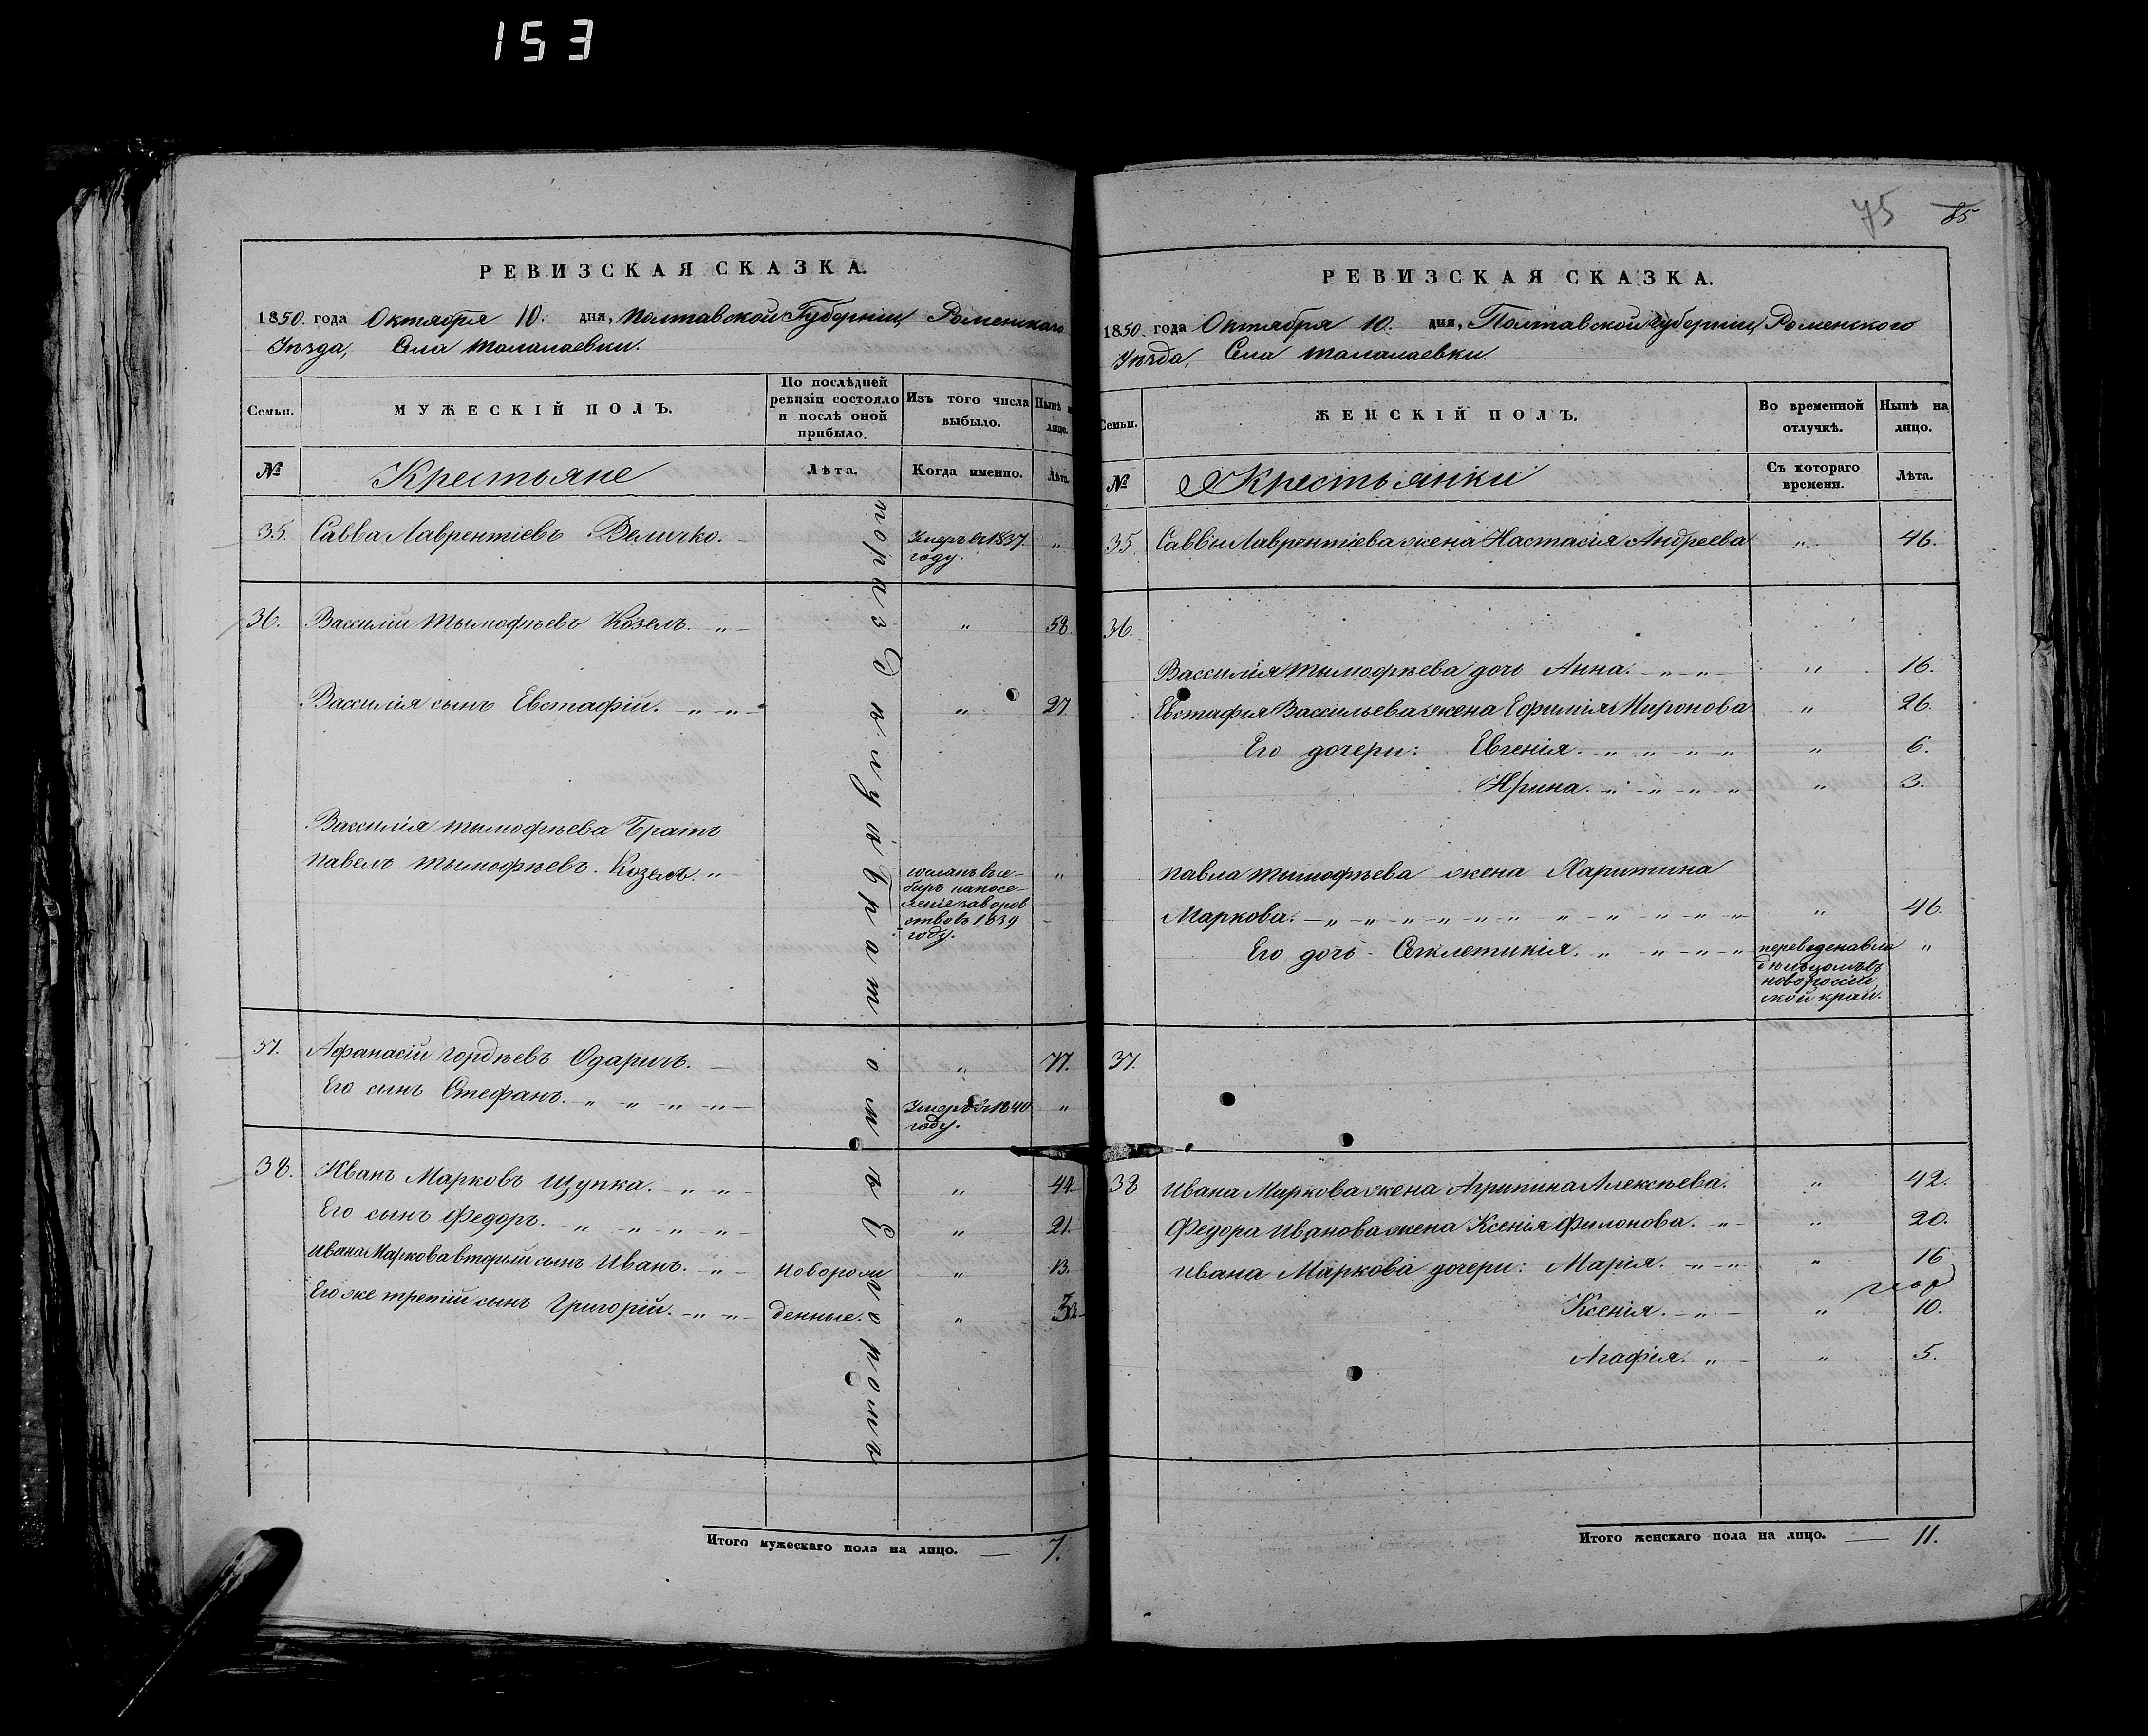 153
РЕВИЗСКАЯ СКАЗКА.
1850. года Октября 10. дня, Полтавской Губерніи, Роменскаго
Уѣзда, Села Талалаевки.
Семьи.
МУЖЕСКІЙ ПОЛЪ.
По послѣдней ревизіи состояло и послѣ оной прибыло.
Изъ того числа выбыло.
Нынѣ на лицо.
№
Крестьяне
Лѣта.
Когда именно.
Лѣта.
35. Савва Лаврентіевъ Величко. Умеръ въ 1837. „
году.
36. Вассилій Тымофѣевъ Козелъ. „ „ 58.
Вассилія сынъ Евстафій. „ „ „ 27.
Вассилія Тымофѣева Братъ
Павелъ Тымофѣевъ. Козелъ. „ сосланъ въ Си- „
бирь на посе-
леніе за воров
ство въ 1839
году.
37. Афанасій Гордѣевъ Одаричъ. „ 77.
Его сынъ Стефанъ. „ „ „ „ Умеръ въ 1840 „
году.
38. Иванъ Марковъ Щупка. „ „ „ 44.
Его сынъ Федоръ. „ „ „ „ „ 21.
Ивана Маркова вторый сынъ Иванъ. „ новорож „ 13.
Его же третій сынъ Григорій. „ „ денные. „ 3
Итого мужескаго пола на лицо. — 7.
75 85
РЕВИЗСКАЯ СКАЗКА.
1850. года Октября 10. дня, Полтавской Губерніи, Роменского
Уѣзда, Села Талалаевки.
Семьи.
ЖЕНСКІЙ ПОЛЪ.
Во временной отлучкѣ.
Нынѣ на лицо.
№
Крестьянки
Съ котораго времени.
Лѣта.
35. Саввы Лаврентіева жена Настасія Андреева „ 46.
36.
Вассилія Тымофѣева дочь Анна. „ „ „ 16.
Евстафія Вассильева жена Ефимія Миронова „ 26.
Его дочери: Евгенія. „ „ „ „ „ 6.
Ирина. „ „ „ „ „ 3.
Павла Тымофѣева жена Харитина
Маркова. „ „ „ „ „ „ „ „ „ „ „ „ „ 46.
Его дочь - Секлетикія. „ „ „ „ переведена вла „
дѣльцомъ въ
новороссій
ской край.
37.
38 Ивана Маркова жена Агрипина Алексѣева. „ 42.
Федора Иванова жена Ксенія Филонова. „ „ 20.
Ивана Маркова дочери: Марія. „ „ „ 16
Ксенія. „ „ 10.
Агафія. „ „ 5.
Итого женскаго пола на лицо. — 11.